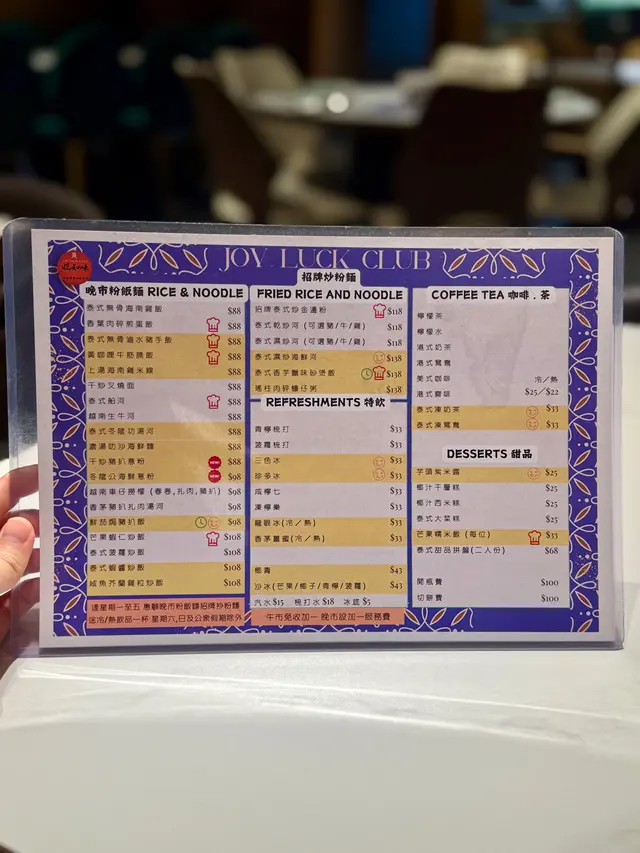 JOY LUCK CLUB
晚市粉紙麵 RICE & NOODLE
泰式無骨海南雞飯 $88
香葉肉碎煎蛋飯 $88
泰式無骨滷水豬手飯 $88
黃咖喱牛筋腩飯 $88
上湯海南雞米線 $88
干炒叉燒面 $88
泰式船河 $88
越南生牛河 $88
泰式冬陰功湯河 $88
濃湯叻沙海鮮麵 $88
干炒豬扒意粉 NEW! $88
冬陰公海鮮意粉 NEW! $98
越南車仔撈檬 (春卷,扎肉,豬扒) $98
香茅豬扒扎肉湯河 $98
鮮茄焗豬扒飯 $98
芒果蝦仁炒飯 $108
泰式菠蘿炒飯 $108
泰式蝦醬炒飯 $108
咸魚芥蘭雞粒炒飯 $108
逢星期一至五 惠顧晚市粉飯麵招牌炒粉麵
送冷/熱飲品一杯 星期六,日及公眾假期除外
招牌炒粉麵
FRIED RICE AND NOODLE
招牌泰式炒金邊粉 $118
泰式乾炒河 (可選豬/牛/雞) $118
泰式濕炒河 (可選豬/牛/雞) $118
泰式濕炒海鮮河 $138
泰式香芋臘味砂煲飯 $138
瑤柱肉碎蠔仔粥 $138
REFRESHMENTS 特飲
青檸梳打 $33
菠蘿梳打 $33
三色冰 $33
珍多冰 $33
咸檸七 $33
凍檸樂 $33
龍眼冰(冷/熱) $33
香茅薑蜜(冷/熱) $33
椰青 $43
沙冰(芒果/椰子/青檸/菠蘿) $43
汽水 $15 梳打水 $18 冰底 $5
午市免收加一 晚市設加一服務費
COFFEE TEA 咖啡.茶
檸檬茶
檸檬水
港式奶茶
港式鴛鴦
美式咖啡 冷/熱
港式齋啡 $25/$22
泰式凍奶茶 $33
泰式凍鴛鴦 $33
DESSERTS 甜品
芋頭紫米露 $25
椰汁千層糕 $25
椰汁西米糕 $25
泰式大菜糕 $25
芒果糯米飯 (每位) $33
泰式甜品拼盤(二人份) $68
開瓶費 $100
切餅費 $100